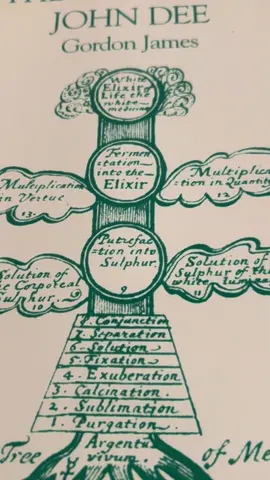 JOHN DEE
Gordon James
White
Elixir
Life the
white
medicine
Fermen
tation
into the
Elixir
Multiplication
in Vertue
13.
Multiplica
tion in Quantit
12.
Putrefac
tion into
Sulphur.
9
Solution of
the Corporeal
Sulphur.
10.
Solution of
Sulphur of th
white
11
Conjunction
7. Separation
6. Solution
5. Fixation
4. Exuberation
3. Calcination.
2. Sublimation
1. Purgation.
Argentu
vivum.
Tree
of Me